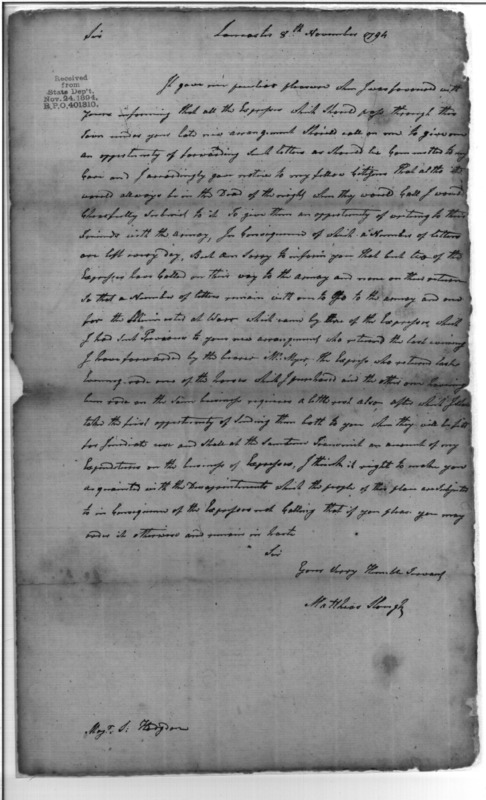 Sir Lancaster 8th November 1794
Received
from
State Dep't.
Nov. 24, 1894.
B.P.O. 401310.
It gave me peculiar pleasure when I was favored with
yours informing that all the Expresses which should pass through this
Town under your late new arrangement should call on me to give me
an opportunity of forwarding such letters as should be Committed to my
Care and I accordingly gave notice to my fellow Citizens that altho it
would always be in the Dead of the night when they would Call I would
Chearfully submit to it to give them an opportunity of writing to their
friends with the army, In Consequence of which a Number of letters
are left every day, But am sorry to inform you that but two of the
Expresses have Called on their way to the army and none on their return
So that a Number of letters remain with me to go to the army and one
for the at Warr which came by one of the Expresses which
I had sent previous to your new arrangement who returned the last evening
I have forwarded by the bearer Mr Myer, the Express who returned last
evening rode one of the horses which I purchased and the other one having
been rode on the same business requires a little rest also, after which I shall
take the first opportunity of sending them both to you when they will be fit
for immediate use and shall at the same time transmit an account of my
Expenditures on the business of Expresses, I think it right to make you
acquainted with the Disappointments which the people of this place are subjected
to in Consequence of the Expresses not Calling that if you please you may
order it otherwise and remain in haste
Sir
Your Very Humble Servant
Matthias Slough
Majr. S. Hodgdon